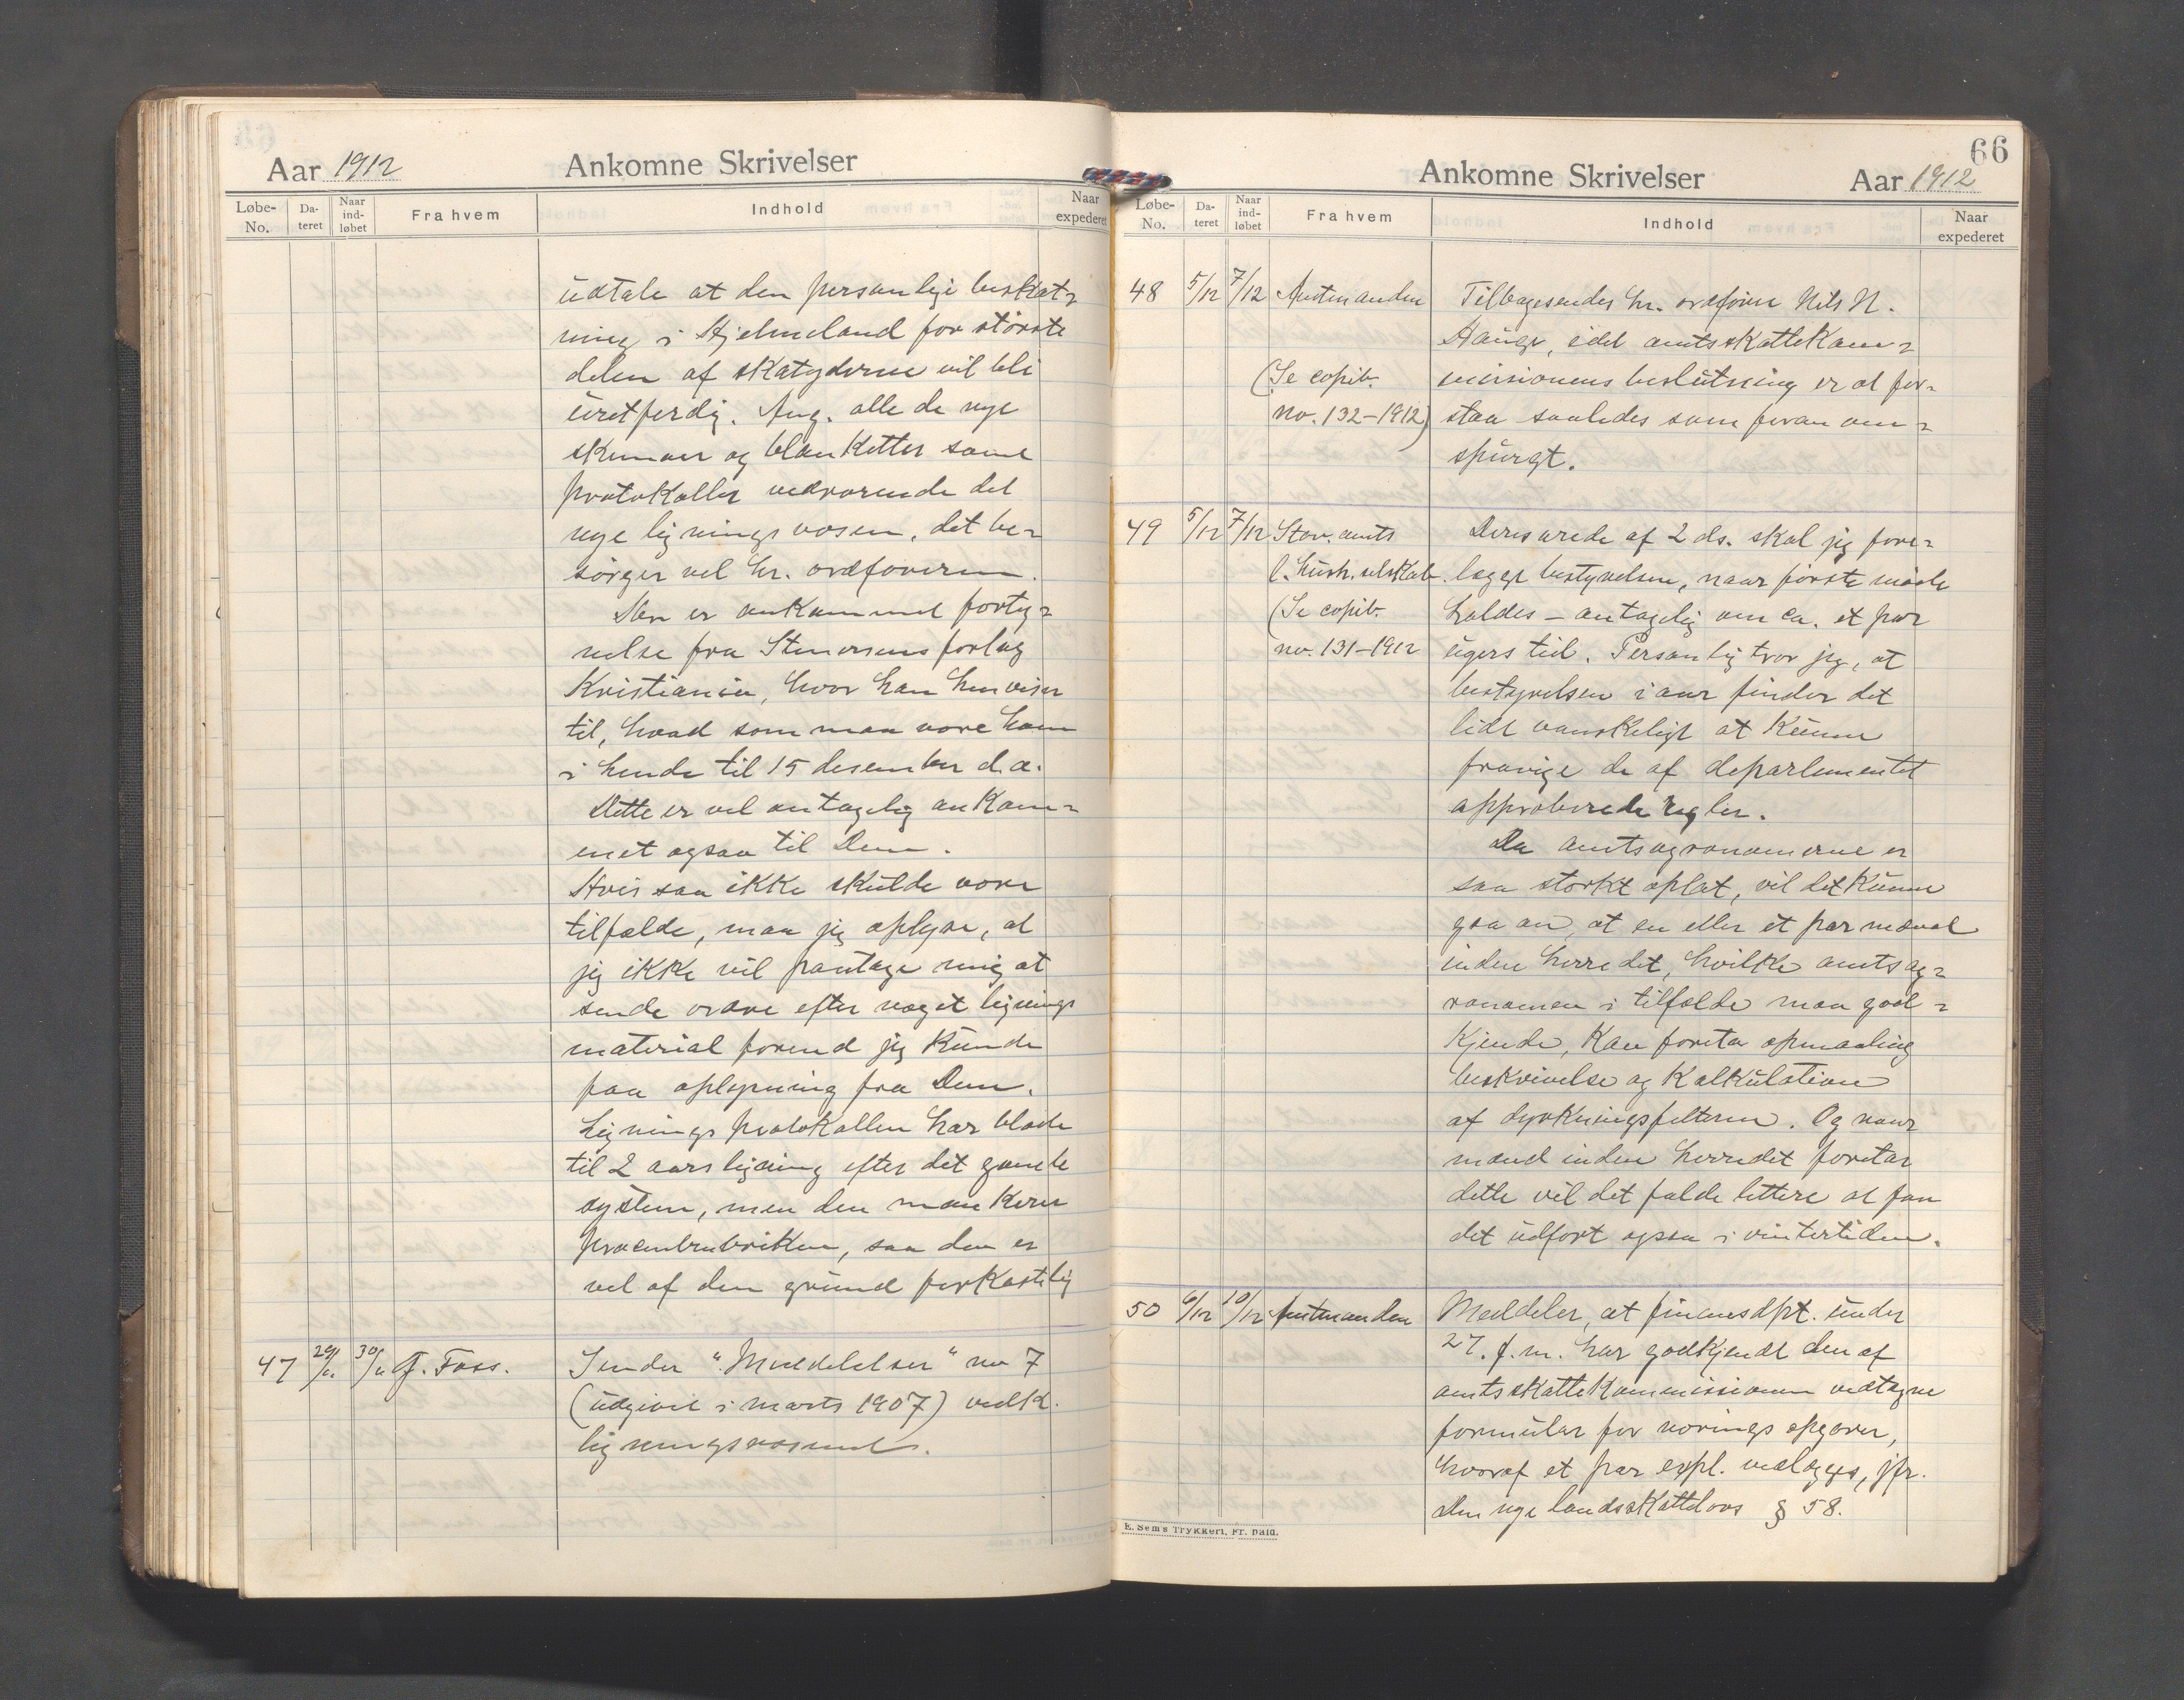 Aar 1912 Ankomne Skrivelser
Løbe-No. Da-teret Naar ind-løbet Fra hvem Indhold Naar expederet
udtale at den personlige beskat-
ning i Hjelmeland for største
delen af skatyderne vil bli
uretferdig. Ang. alle de nye
skemaer og blanketter samt
protokoller vedrørende det
nye ligningsvæsen, det be-
sørger vel hr. ordføreren.
Der er ankommet forteg-
nelse fra Stenersens forlag
Kristiania, hvor han henviser
til, hvad som maa være ham
i hende til 15 desember d.a.
Dette er vel antagelig ankom-
met ogsaa til Dem.
Hvis saa ikke skulde være
tilfælde, maa jeg oplyse, at
jeg ikke vil paatage mig at
sende ordre efter noget lignings
material forend jeg kunde
faa oplysning fra Dem.
Ligningsprotokollen har blade
til 2 aars ligning efter det gamle
system, men den mankerer
procentrubriken, saa den er
vel af den grund forkastelig
47 29/11 30/11 G. Foss. Sender "Meddelelser" no 7
(udgivet i marts 1907) vedk.
ligningsvæsenet.
66
Ankomne Skrivelser Aar 1912
Løbe-No. Da-teret Naar ind-løbet Fra hvem Indhold Naar expederet
48 5/12 7/12 Amtmanden Tilbagesendes hr. ordfører Nils N.
Hauge, idet amtsskattekom-
(Se copib. missionens beslutning er at for-
no. 132-1912) staa saaledes som foran om-
spurgt.
49 5/12 7/12 Stav. amts Deres ærede af 2 ds. skal jeg fore-
l. hush. selskab. lægge bestyrelsen, naar første møde
(Se copib. holdes - antagelig om ca. et par
no. 131-1912 ugers tid. Personlig tror jeg, at
bestyrelsen i aar finder det
lidt vanskeligt at kunne
fravige de af departementet
approberede regler.
Da amtsagronomerne er
saa sterkt optat, vil det kunne
gaa an, at en eller et par mænd
inden herredet, hvilke amtsag-
ronomen i tilfælde maa god-
kjende, kan foreta opmaaling
beskrivelse og kalkulation
af dyrkningsfelterne. Og naar
mænd inden herredet foretar
dette vil det falde lettere at faa
det udført ogsaa i vintertiden.
50 6/12 10/12 Amtmanden Meddeler, at finansdpt. under
27. f.m. har godkjendt den af
amtsskattekommissionen vedtagne
formular for nærings opgaver,
hvoraf et par expl. vedlægges, jfr.
den nye landsskattelovs § 58.
E. Sem's Trykkeri, Fr. hald.